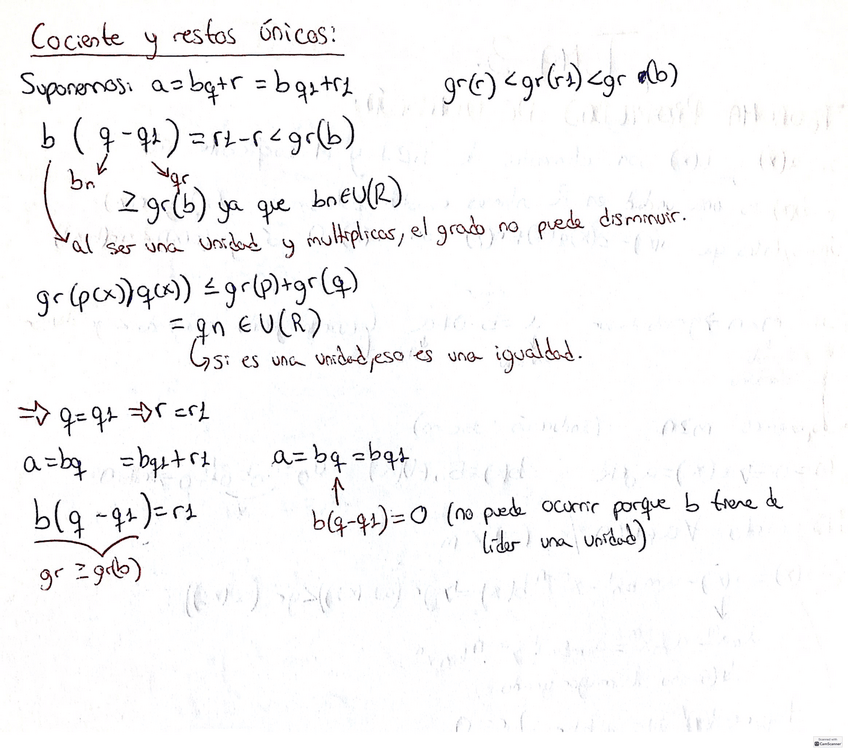 Cociente y restos únicos:
Suponemos: a=bq+r = bq1+r1 gr(r) < gr(r1) < gr (b)
b ( q - q1 ) = r1-r < gr(b)
bn gr
≥ gr(b) ya que bn∈U(R)
al ser una unidad y multiplicas, el grado no puede disminuir.
gr(p(x))q(x)) ≤ gr(p)+gr(q)
= qn ∈U(R)
↳ si es una unidad, eso es una igualdad.
⇒ q=q1 ⇒ r=r1
a=bq =bq1+r1 a=bq =bq1
b(q-q1)=r1 b(q-q1)=0 (no puede ocurrir porque b tiene de
líder una unidad)
gr ≥gr(b)
Scanned with
CamScanner